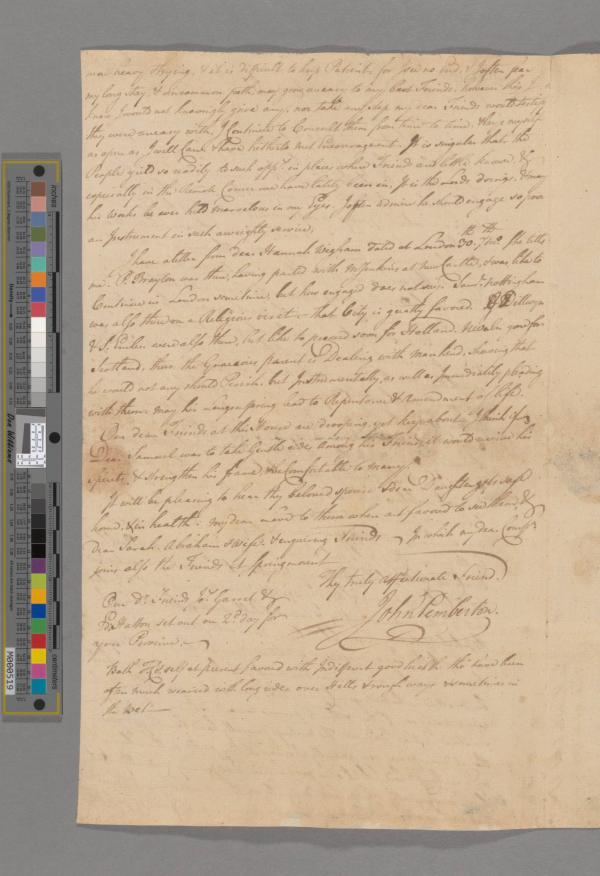 near heavy Stagering, & it is difficult to keep Patient, for I see no End, & I often fear
my long stay, & uncommon path, may give uneasy to my best Friends, however this I
know I would not knowingly give any, nor take any step my dear Friends would testify
they were uneasy with, I continue to Consult them from time to time. Have myself
as open as I well can & have hitherto met Encouragement. It is singular that the
People yield so readily to such opp.ys in places where Friends are little known, &
especially in the Corner we have lately been in. It is the Lords doings, & may
his Works be ever held marvelous in my Eyes. I often admire he should engage so poor
an Instrument in such a weighty service,
I have a letter from dear Hannah Wigham dated at London 30th, 7th mo. She tells
me. P. Brayton was there, having parted with at New Castle, & was like to
Continue in London some time, but how engaged does not say. Saml. Nottingham
was also there on a Religious visit, & that City is greatly favored. Dillwyn
& S. Emlen were also there, but like to proceed soon for Holland.
Scotland, thus the Gracious parent is Dealing with mankind, shewing that
he would not any should Perish, but Instrumentally, as well as Immediately pleading
with them. may his long suffering lead to Repentance & amendment of life.
Our dear Friends at this House are drooping, yet keep about, I think if
Dear Samuel was to take Gentle rides among his Friends, it would revive his
spirits, & strengthen his frame, & be Comfortable to many.
It will be pleasing to hear thy beloved spouse & dear Daughter got safe
home, & in health. my dear Love to them when art favored to see them, &
dear Sarah. Abraham & wife & enquiring Friends In which my dear Comp.n
joins also the Friends at Springmount
Thy truly Affectionate Friend.
John Pemberton.
Our Dr. Friends Garret &
Hatton set out on 2d day for
your Province.
Both Self at present favord with indifferent good health tho' have been
often much wearied with long rides over Hills & rough ways & sometimes in
the wet
inches
centimeters
Don Williams
M000519